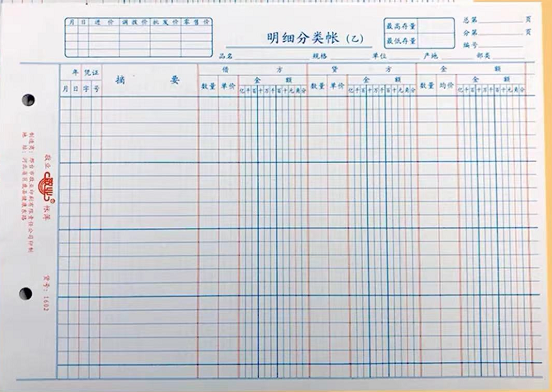 月 日 进价 调拨价 批发价 零售价
明细分类帐(乙)
最高存量
最低存量
总第 页
分第 页
编号
品名 规格 单位 产地 部类
年 凭证 摘要 借方 贷方 余额
月 日 字 号 数量 单价 金额 数量 单价 金额 数量 均价 金额
亿千百十万千百十元角分 亿千百十万千百十元角分 亿千百十万千百十元角分
敬业 敬业 ® 账簿 货号:1602